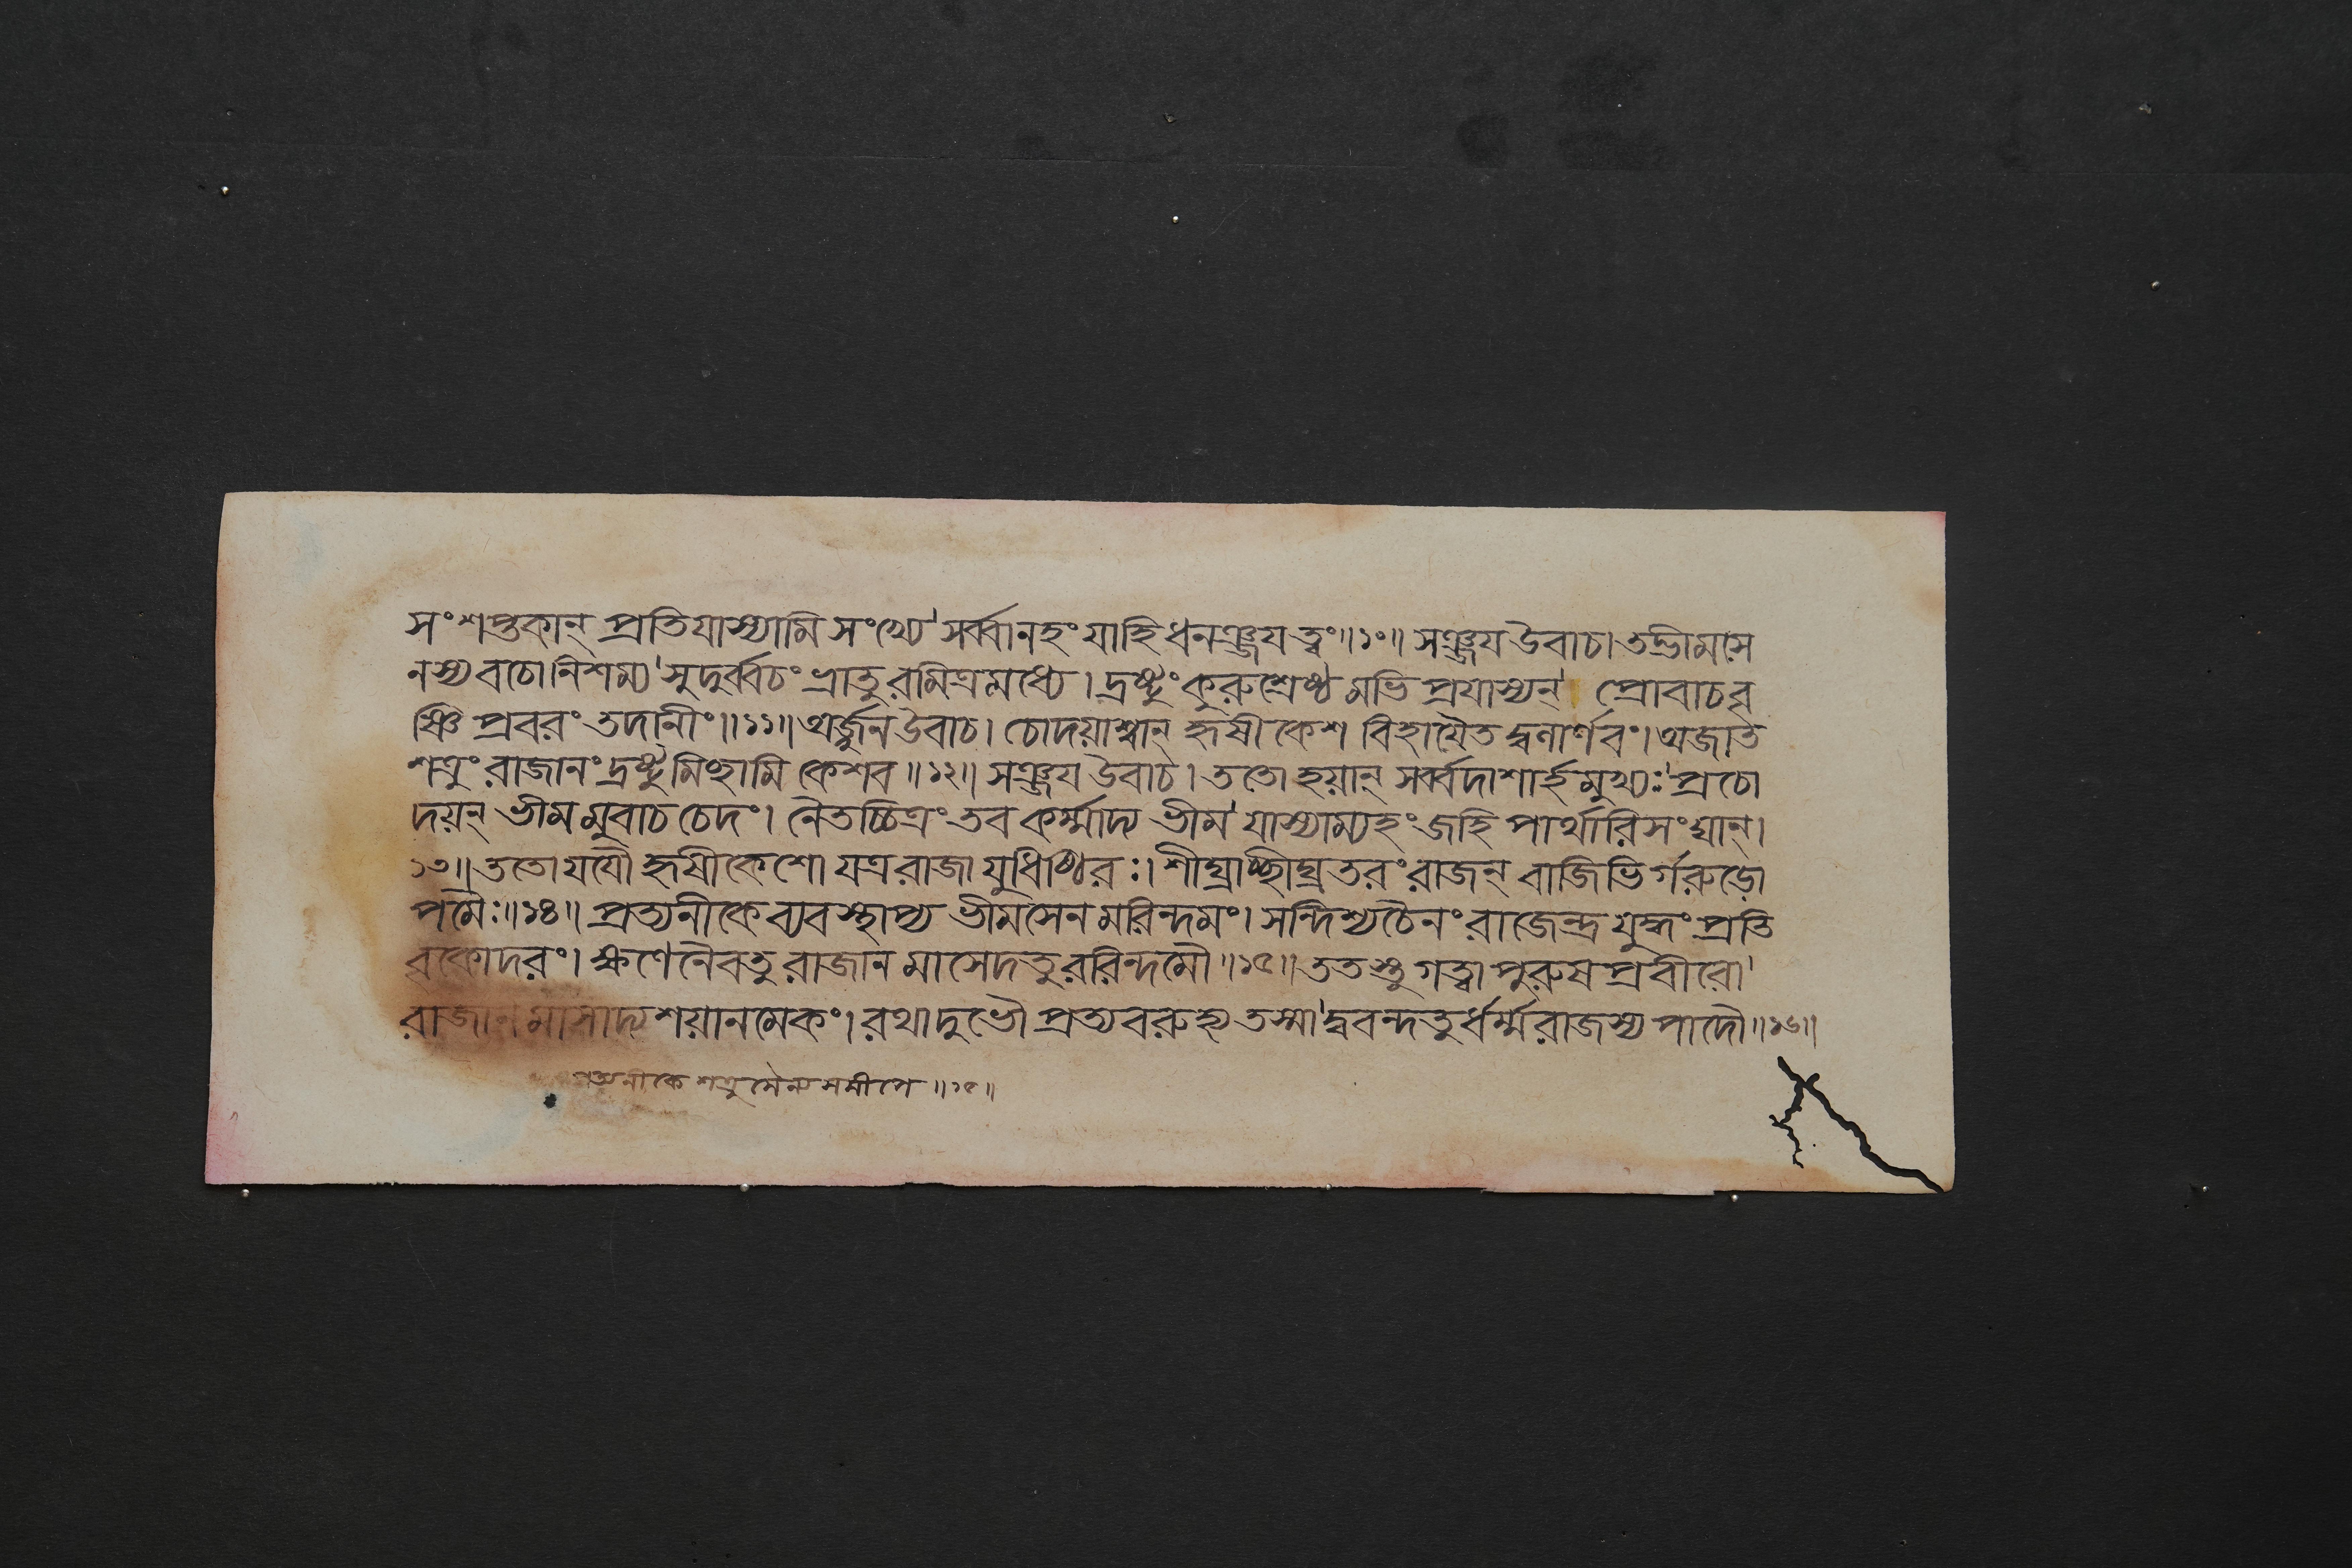 সংশপ্তকান্ প্রতিযাস্যামি সংখ্যে' সর্ব্বানহং যাহি ধনঞ্জয ত্বং॥১০॥ সঞ্জয উবাচ। তদ্ভীমসে
নস্য বচো নিশম্য' সুদুর্ব্বচং ভ্রাতুরমিত্রমধ্যে। দ্রষ্টুং কুরুশ্রেষ্ঠমভিপ্রযাস্যন্' প্রোবাচ বৃ
ষ্ণি প্রবরং তদানীং॥১১॥ অর্জ্জুন উবাচ। চোদয়াশ্বান্ হৃষীকেশ বিহাযৈতদ্বলার্ণবং। অজাত
শত্রুং রাজানং দ্রষ্টুমিচ্ছামি কেশব॥১২॥ সঞ্জয উবাচ। ততো হয়ান্ সর্ব্বদাশার্হমুখ্যঃ' প্রচো
দয়ন্ ভীমমুবাচ চেদং। নৈতচ্চিত্রং তব কর্ম্মাদ্য ভীম' যাস্যাম্যহং জহি পার্থারিসংঘান্।
১৩॥ ততো যযৌ হৃষীকেশো যত্র রাজা যুধিষ্ঠিরঃ। শীঘ্রাচ্ছীঘ্রতরং রাজন্ বাজিভির্গরুড়ো
পমৈঃ॥১৪॥ প্রত্যনীকে ব্যবস্থাপ্য ভীমসেনমরিন্দমং। সন্দিশ্য চৈনং রাজেন্দ্র যুদ্ধং প্রতি
বৃকোদরং। ক্ষণেনৈব তু রাজানমাসেদতুররিন্দমৌ॥১৫॥ ততস্তু গত্বা পুরুষপ্রবীরো'
রাজানমাসাদ্য শয়ানমেকং। রথাদুভৌ প্রত্যবরুহ্য তস্মা'দ্ববন্দতুর্ধর্ম্মরাজস্য পাদৌ॥১৬॥
প্রত্যনীকে শত্রুসৈন্যসমীপে॥১৫॥